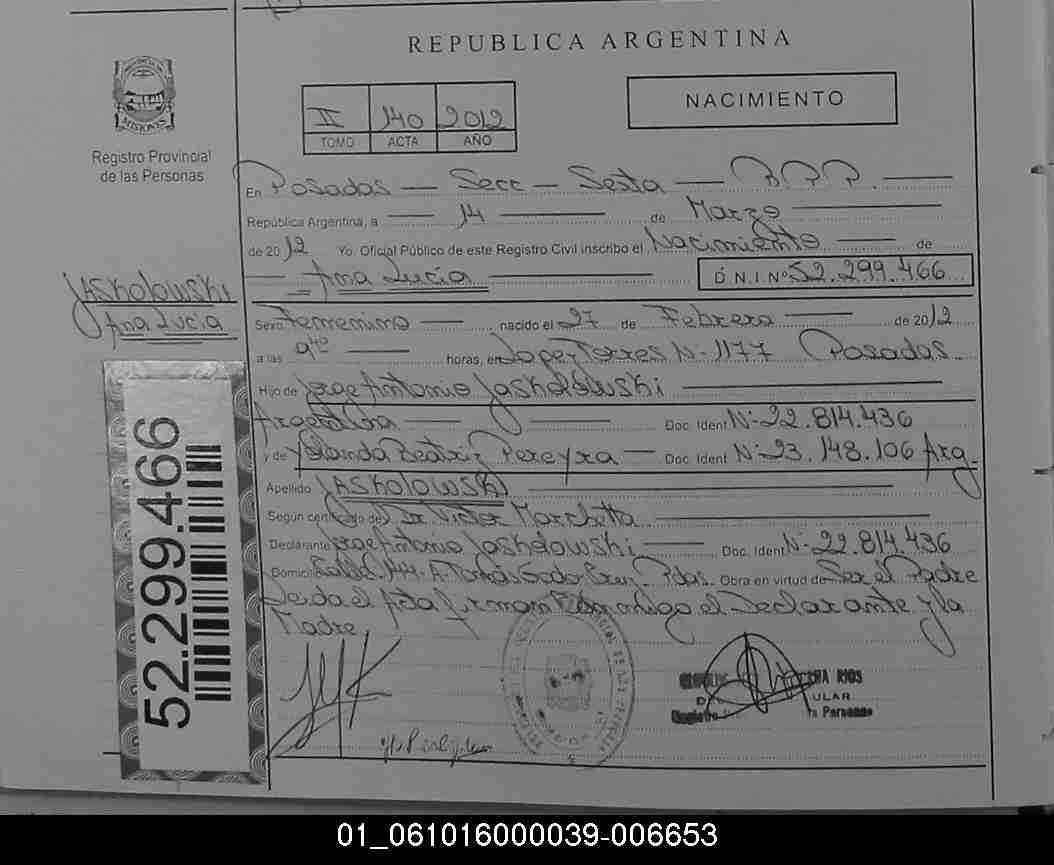 REPUBLICA ARGENTINA
II 140 2012
TOMO ACTA AÑO
NACIMIENTO
MISIONES
Registro Provincial
de las Personas
En Posadas — Secc — Sesta — R.P.P. —
República Argentina, a — 14 — de Marzo —
de 2012 Yo. Oficial Público de este Registro Civil inscribo el Nacimiento — de
— Ana Lucía — D.N.I.Nº 52.299.466
Jaskolowski
Ana Lucia
Sexo Femenino — nacido el 27 de Febrero — de 2012
a las 9 — horas, en Lopez Torres Nº 1177 Posadas.
Hijo de Jorge Antonio Jaskolowski —
Argentina — Doc. Ident Nº 22.814.436
y de Yolanda Beatriz Pereyra — Doc. Ident Nº 23.148.106 Arg.
Apellido JASKOLOWSKI —
Según certificado de Dr Victor Marchetta
Declarante Jorge Antonio Jaskolowski — Doc. Ident Nº 22.814.436
Domicilio 144 Pdas. Obra en virtud de Ser el Padre
Leida el Acta firman conmigo el Declarante y la
Madre.
52.299.466
RIOS
Personas
01_061016000039-006653